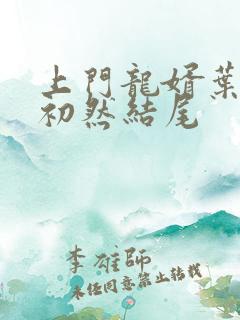 上門龍婿葉
初然結尾
李雄師
未任同意禁止转载